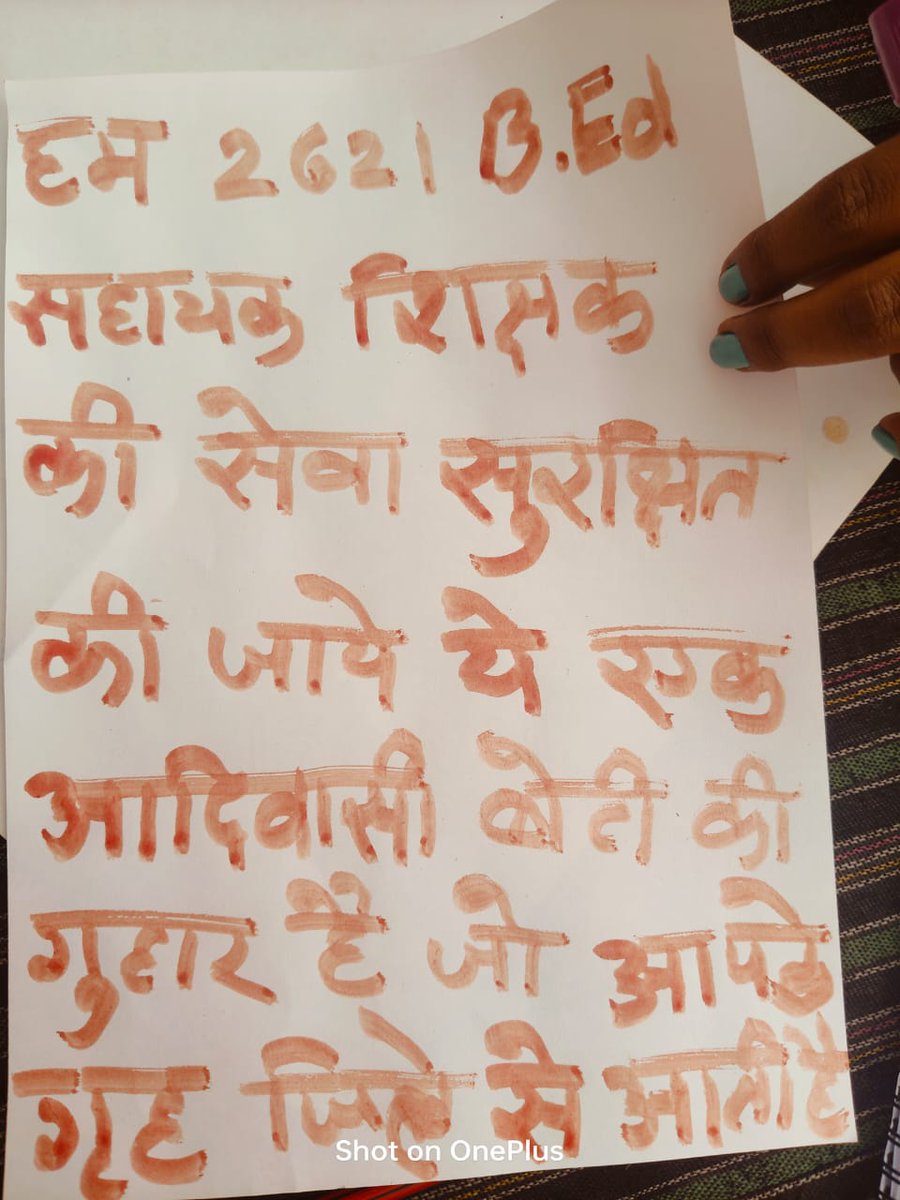 हम 2621 B.Ed
सहायक शिक्षक
की सेवा सुरक्षित
की जाये ये एक
आदिवासी बेटी की
गुहार है जो आपके
गृह जिले से आती है
Shot on OnePlus